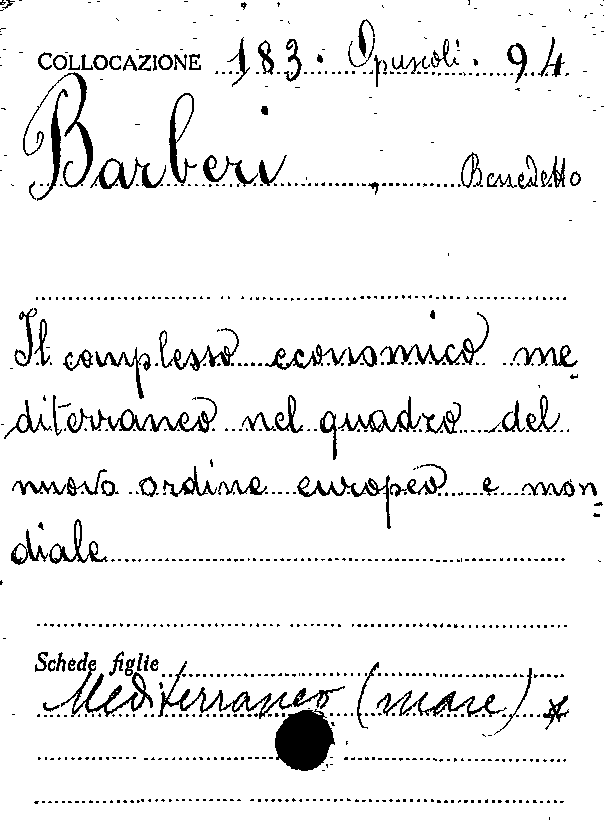 COLLOCAZIONE 183. Opuscoli. 94
Barberi, Benedetto
Il complesso economico me-
diterraneo nel quadro del
nuovo ordine europeo e mon=
diale
Schede figlie
Mediterraneo (mare) *